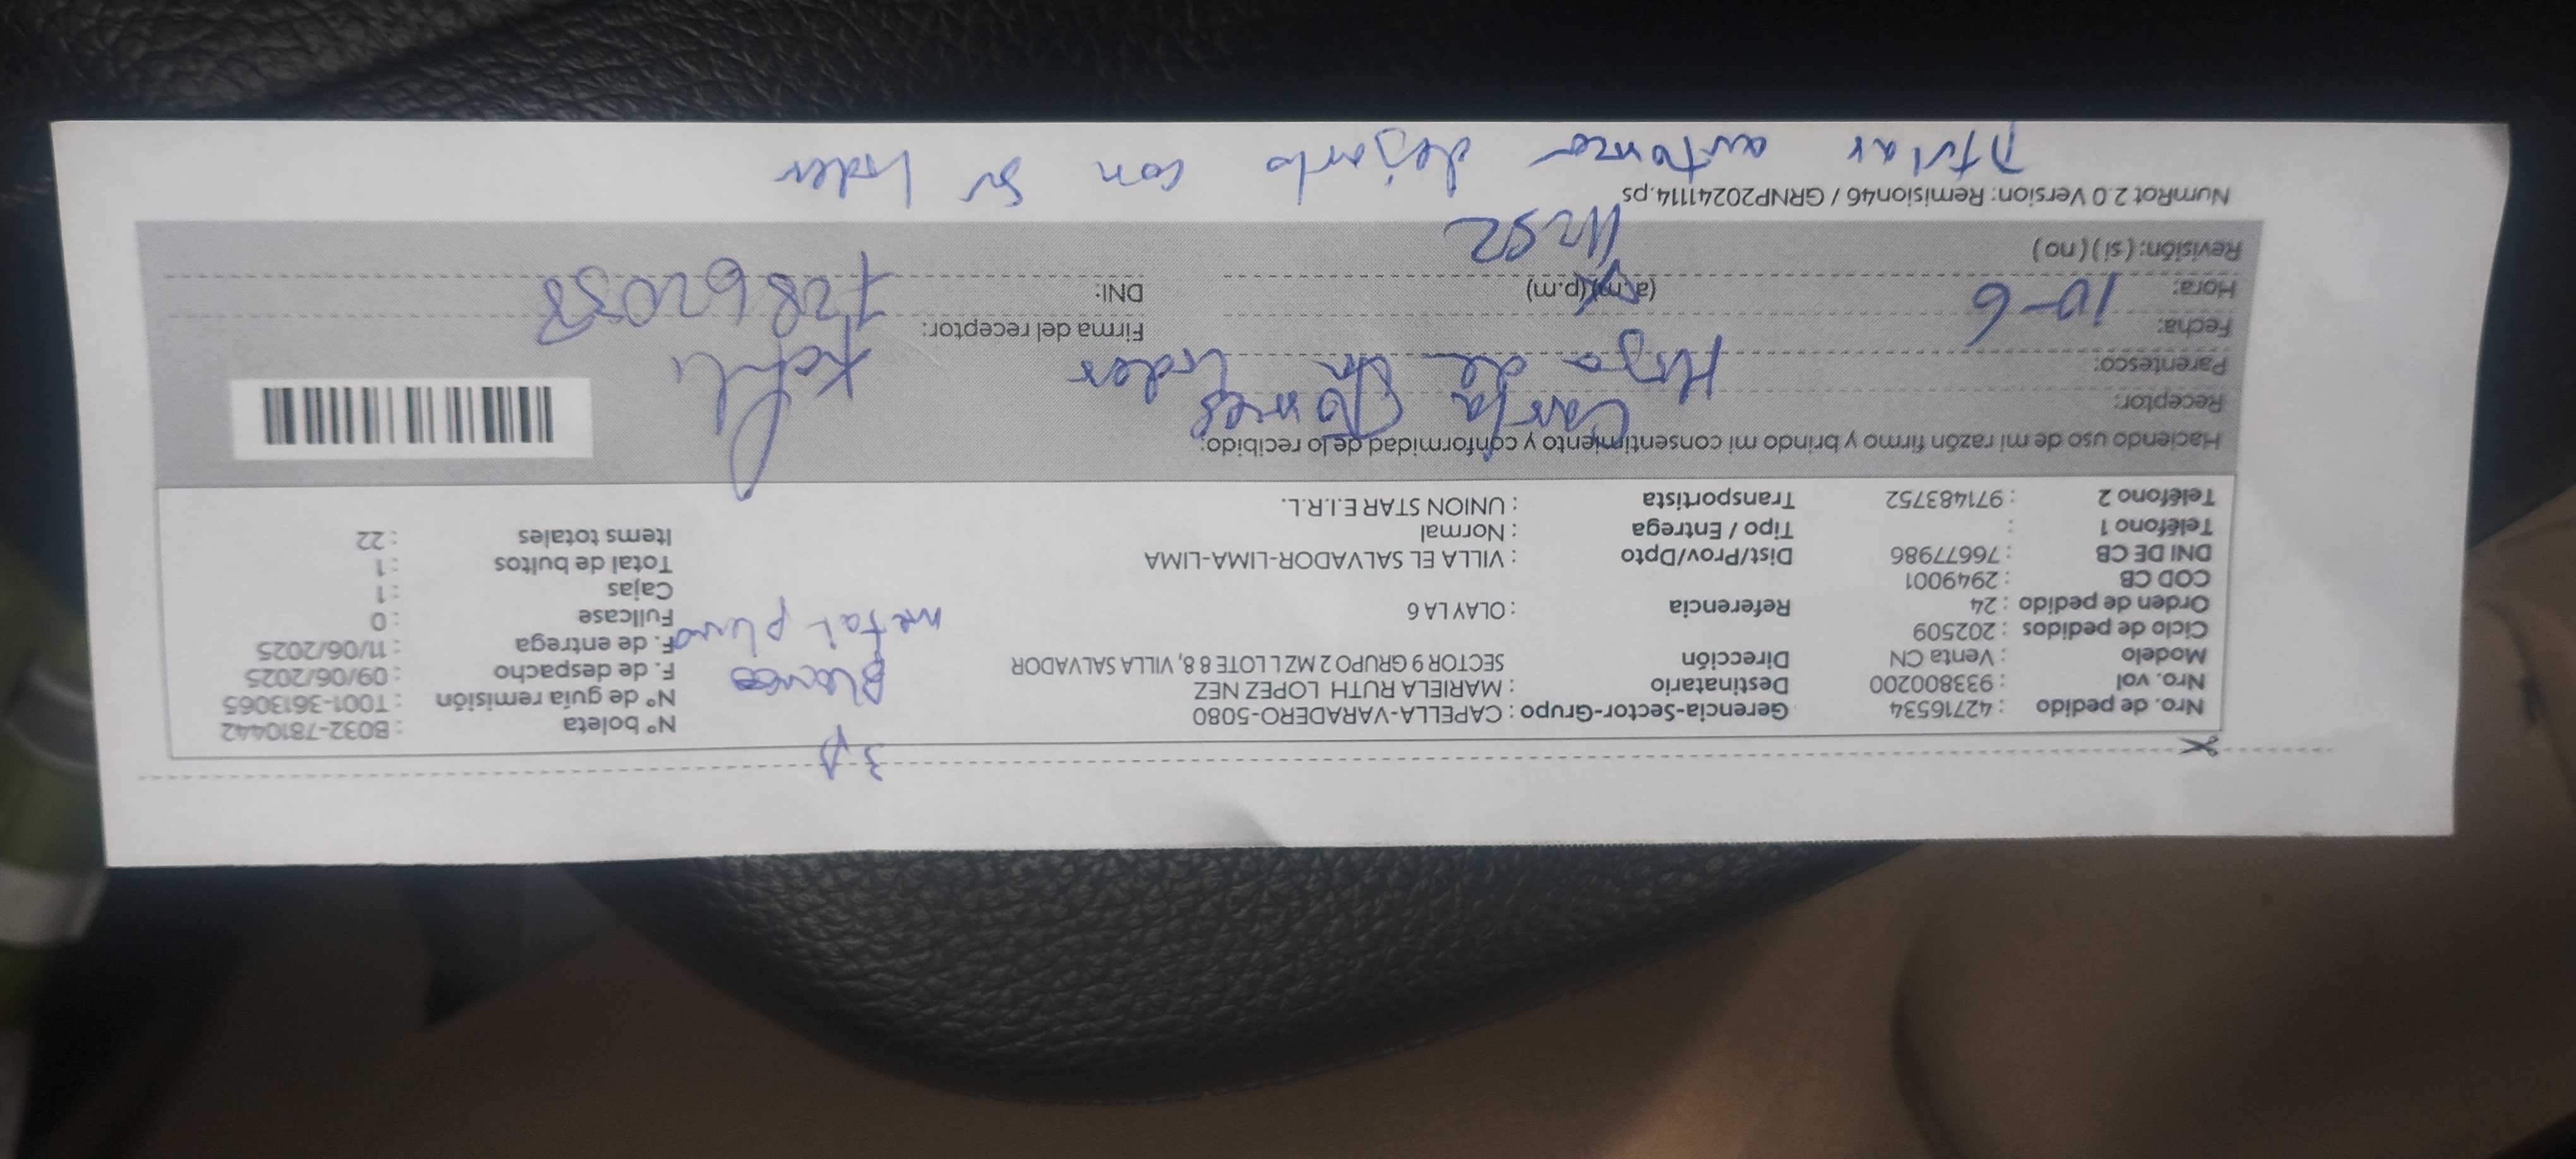 3 p
Nro. de pedido : 42716534 Gerencia-Sector-Grupo : CAPELLA-VARADERO-5080 N° boleta : B032-7810442
Nro. vol : 933800200 Destinatario : MARIELA RUTH LOPEZ NEZ Blanco N° de guía remisión : T001-3613065
Modelo : Venta CN Dirección SECTOR 9 GRUPO 2 MZ L LOTE 8 8, VILLA SALVADOR F. de despacho : 09/06/2025
Ciclo de pedidos : 202509 metal plomo F. de entrega : 11/06/2025
Orden de pedido : 24 Referencia : OLAYLA 6 Fullcase : 0
COD CB : 2949001 Cajas : 1
DNI DE CB : 76677986 Dist/Prov/Dpto : VILLA EL SALVADOR-LIMA-LIMA Total de bultos : 1
Teléfono 1 : Tipo / Entrega : Normal Items totales : 22
Teléfono 2 : 971483752 Transportista : UNION STAR E.I.R.L.
Haciendo uso de mi razón firmo y brindo mi consentimiento y conformidad de lo recibido:
Receptor: Carla Torres
Parentesco: Hija de la Lider
Fecha: 10-6 Firma del receptor:
Hora: (a.m)(p.m) 11:52 DNI: 72862058
Revisión: ( si ) ( no )
NumRot 2.0 Version: Remision46 / GRNP20241114.ps
Titular autoriza dejarlo con su lider